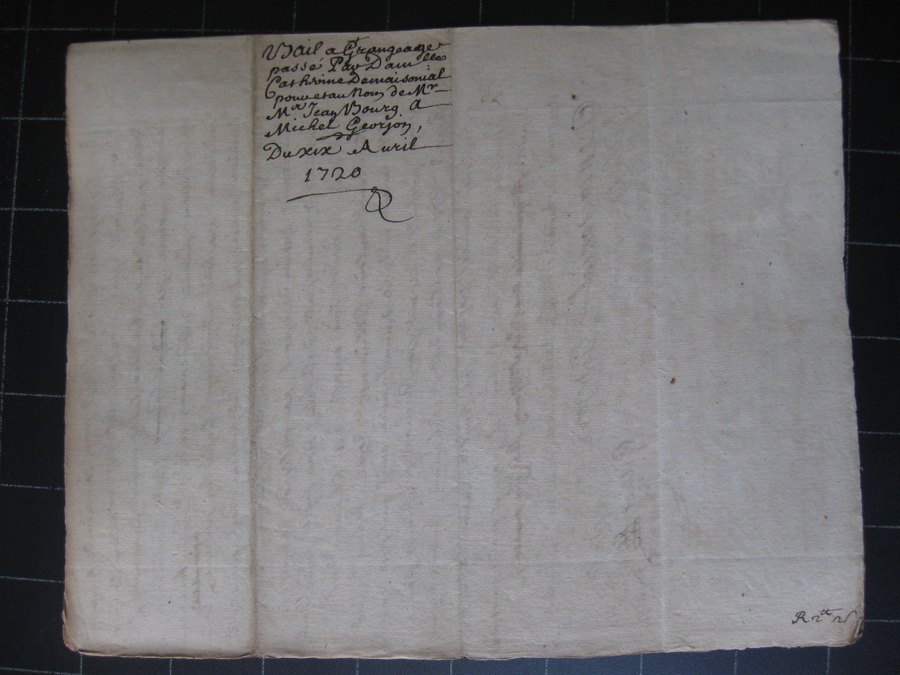 Bail a Grangeage
passé Par Dam.lle
Cathrine Demaisonial
pour et au Nom de Mr
Mr Jean Bourg. a
Michel Georjon,
Du xix Auril
1720
R 2tt